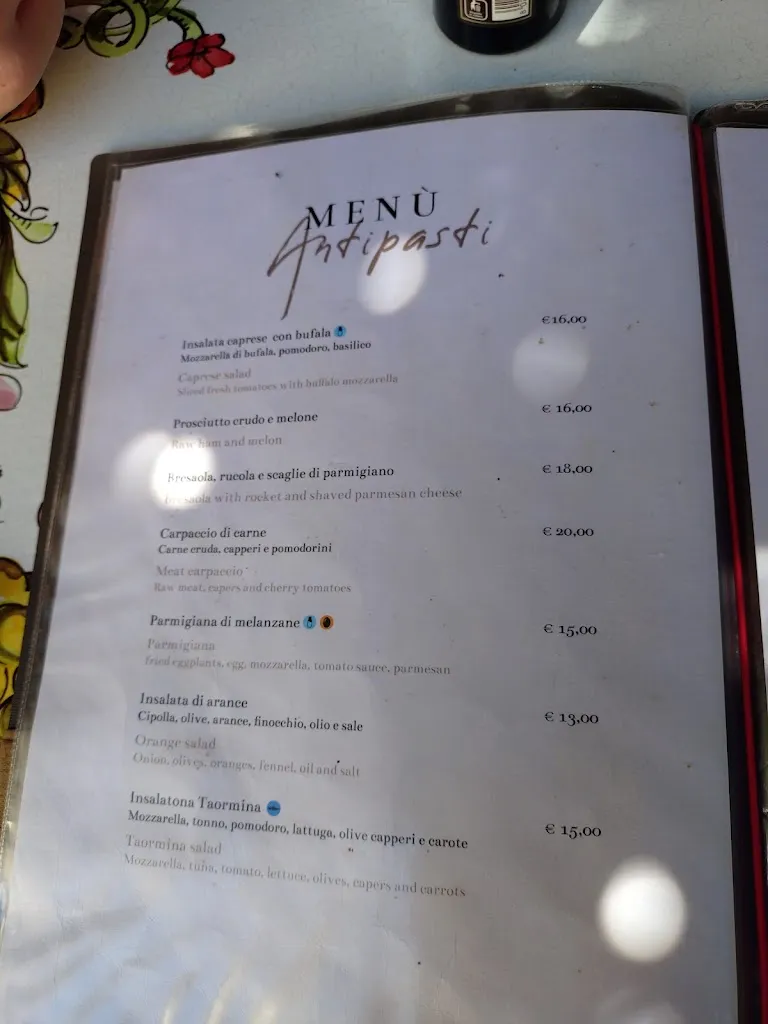 MENÙ
Antipasti
Insalata caprese con bufala €16,00
Mozzarella di bufala, pomodoro, basilico
Caprese salad
Sliced fresh tomatoes with buffalo mozzarella
Prosciutto crudo e melone € 16,00
Raw ham and melon
Bresaola, rucola e scaglie di parmigiano € 18,00
Bresaola with rocket and shaved parmesan cheese
Carpaccio di carne € 20,00
Carne cruda, capperi e pomodorini
Meat carpaccio
Raw meat, capers and cherry tomatoes
Parmigiana di melanzane € 15,00
Parmigiana
fried eggplants, egg, mozzarella, tomato sauce, parmesan
Insalata di arance € 13,00
Cipolla, olive, arance, finocchio, olio e sale
Orange salad
Onion, olives, oranges, fennel, oil and salt
Insalatona Taormina € 15,00
Mozzarella, tonno, pomodoro, lattuga, olive capperi e carote
Taormina salad
Mozzarella, tuna, tomato, lettuce, olives, capers and carrots